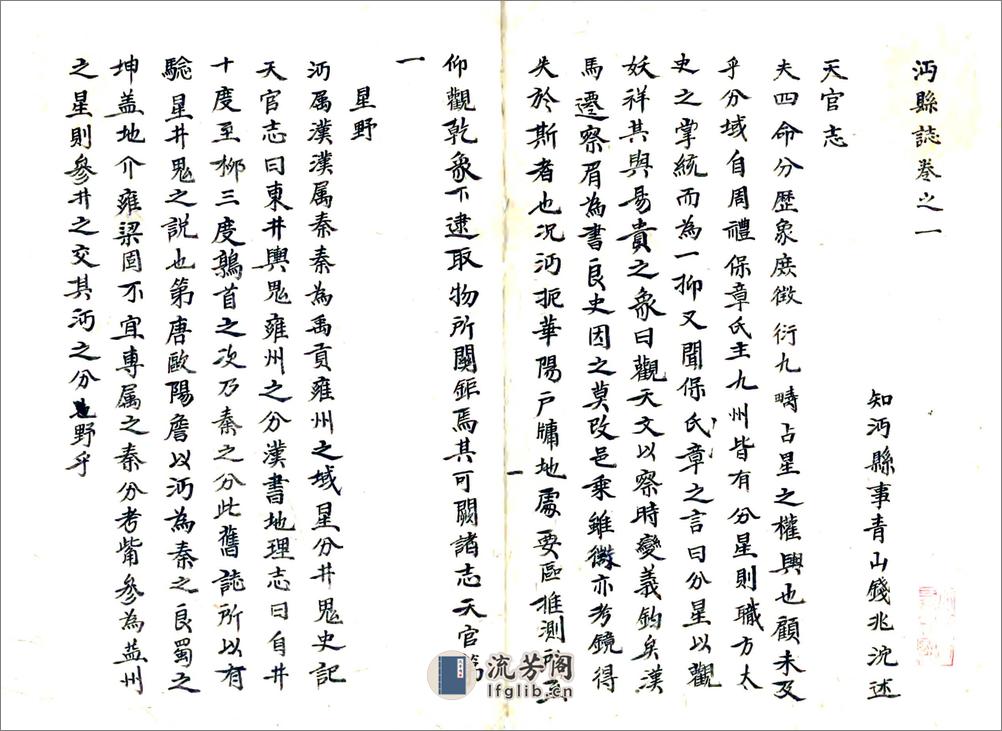 沔縣誌卷之一
知沔縣事青山錢兆沆述
天官志
夫四命分歷象庶徵衍九疇占星之權輿也顧未及
乎分域自周禮保章氏主九州皆有分星則職方太
史之掌統而為一抑又聞保氏章之言曰分星以觀
妖祥其與易賁之象曰觀天文以察時變義鈞矣漢
馬遷察眉為書良史因之莫改邑乘雖微亦考鏡得
失於斯者也况沔扼華陽戶牖地處要區推測所
仰觀乾象下逮取物所關鉅焉其可闕諸志天官第
一
星野
沔属漢漢属秦秦為禹貢雍州之域星分井鬼史記
天官志曰東井輿鬼雍州之分漢書地理志曰自井
十度至柳三度鶉首之次乃秦之分此舊誌所以有
驗星井鬼之説也第唐歐陽詹以沔為秦之良蜀之
坤蓋地介雍梁固不宜専属之秦分考觜參為益州
之星則參井之交其沔之分野乎
流芳阁
lfglib.cn